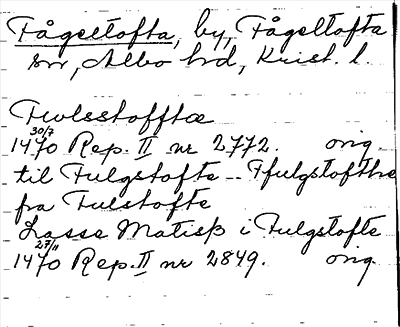 Fågeltofta, by, Fågeltofta
sn, Albo hd, Krist. l.
Fwlsstofftæ
1470 30/7 Rep. II nr 2772. orig.
til Fulgstofte – Ffulgstofthe
fra Fulstofte
Lasse Matisß i Fulgstofte
1470 27/11 Rep. II nr 2849. orig.